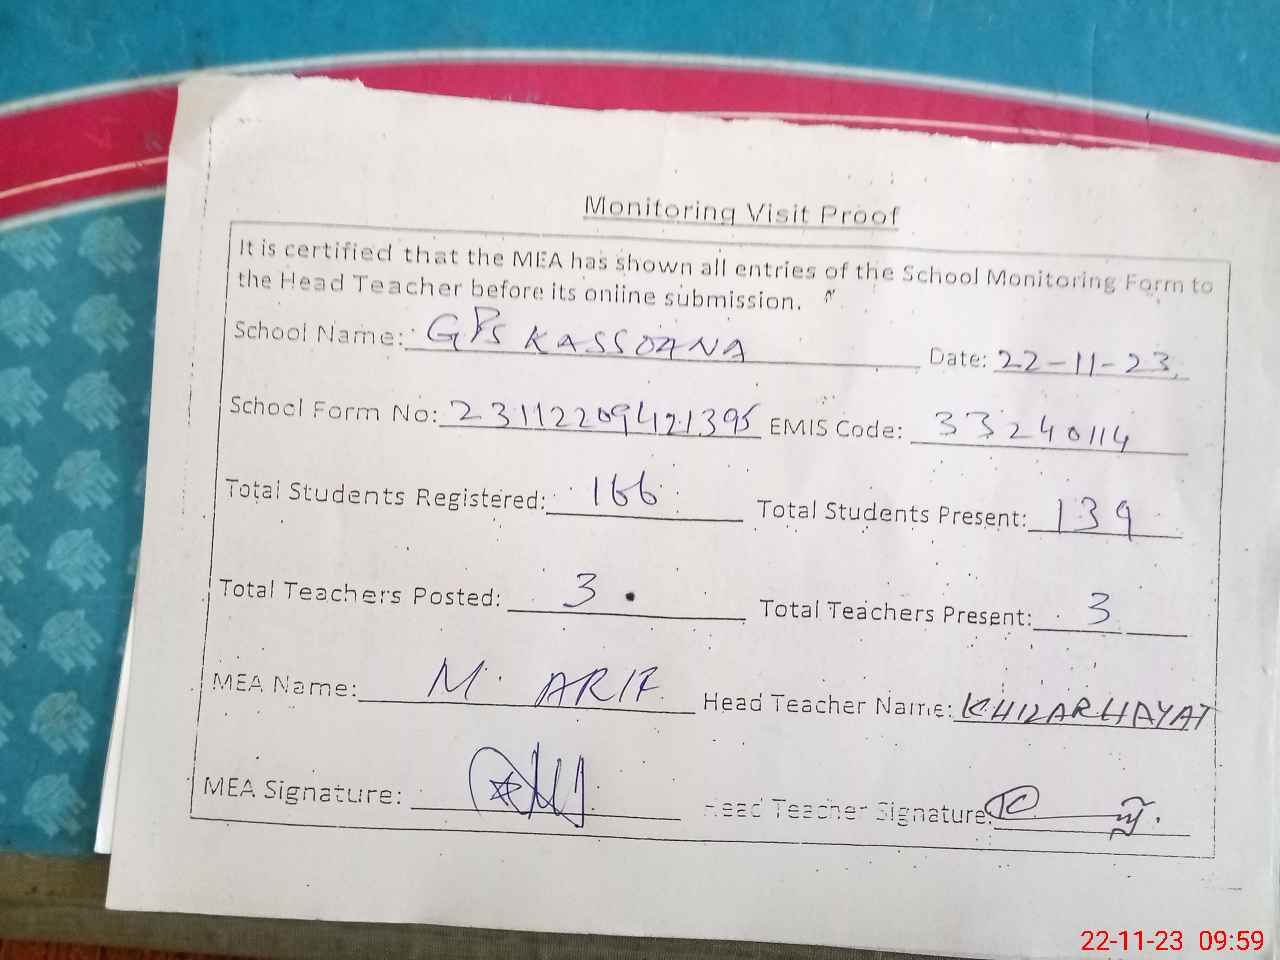 Monitoring Visit Proof
It is certified that the MEA has shown all entries of the School Monitoring Form to
the Head Teacher before its online submission.
School Name: GPS KASSOANA Date: 22-11-23
School Form No: 23112209421395 EMIS Code: 33240114
Total Students Registered: 166 Total Students Present: 139
Total Teachers Posted: 3 Total Teachers Present: 3
MEA Name: M. ARIF Head Teacher Name: KHIZAR HAYAT
MEA Signature: Head Teacher Signature:
22-11-23 09:59